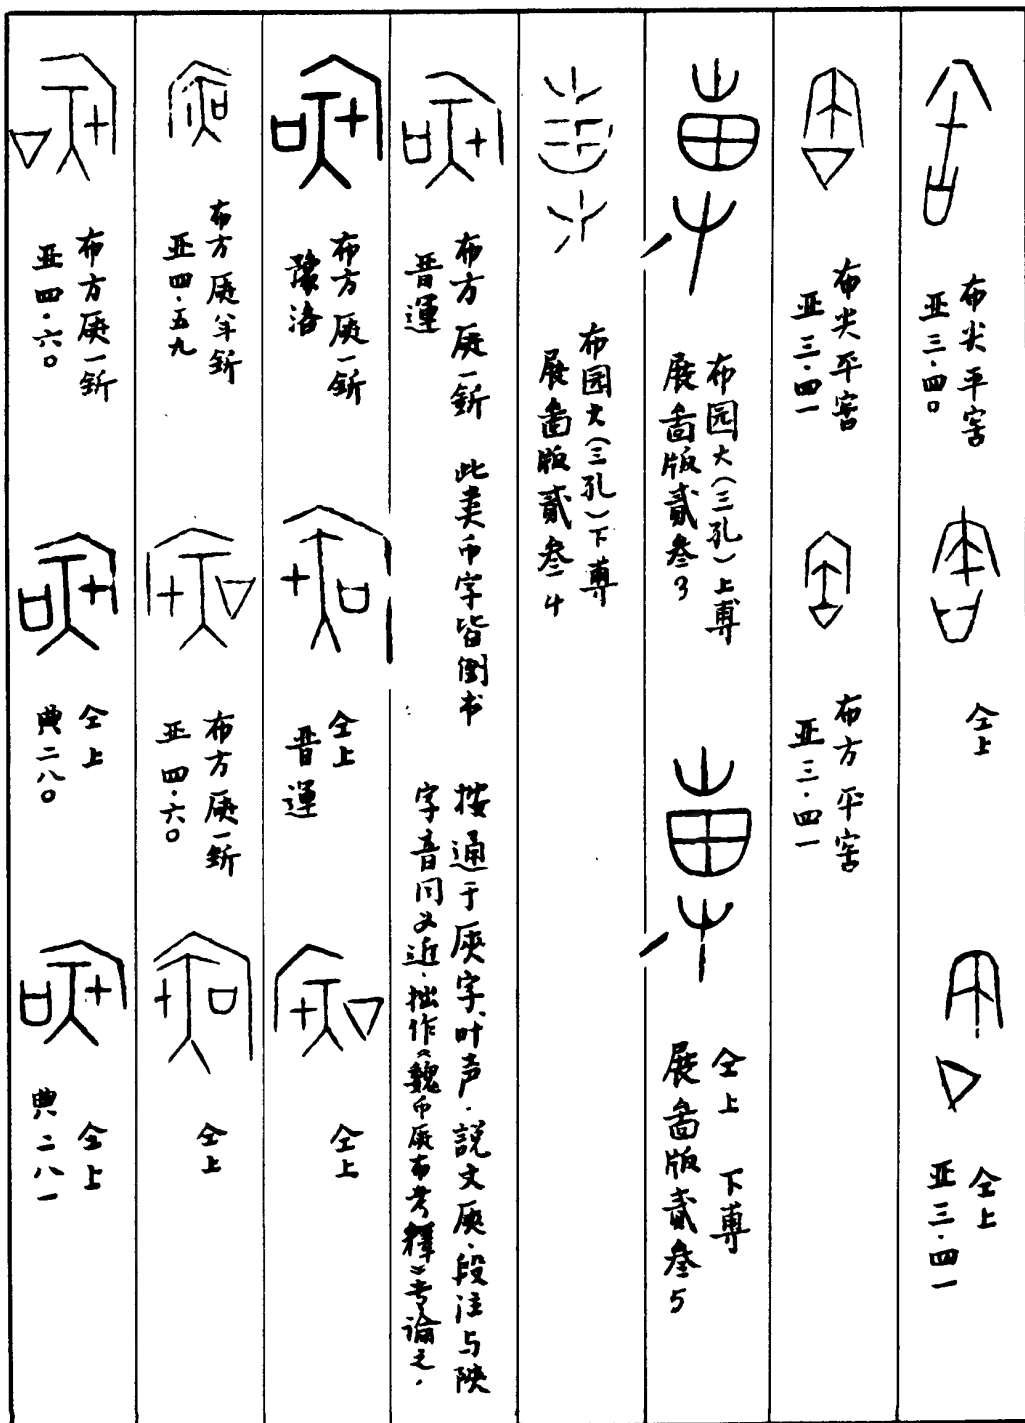 布尖平窖
亚三·四〇
仝上
仝上
亚三·四一
布尖平窖
亚三·四一
布方平窖
亚三·四一
布园大(三孔)上尃
展啚版貳叁3
仝上 下尃
展啚版貳叁5
布园大(三孔)下尃
展啚版貳叁4
布方㕍一釿 此类币字皆倒书
晋運
按通于㕍字,叶声·説文㕍·段注与陝
字音同义近·拙作《魏币㕍布考釋》考論之·
布方㕍一釿
豫洛
仝上
晋運
仝上
布方㕍半釿
亚四·五九
布方㕍一釿
亚四·六〇
仝上
布方㕍一釿
亚四·六〇
仝上
典二八〇
仝上
典二八一